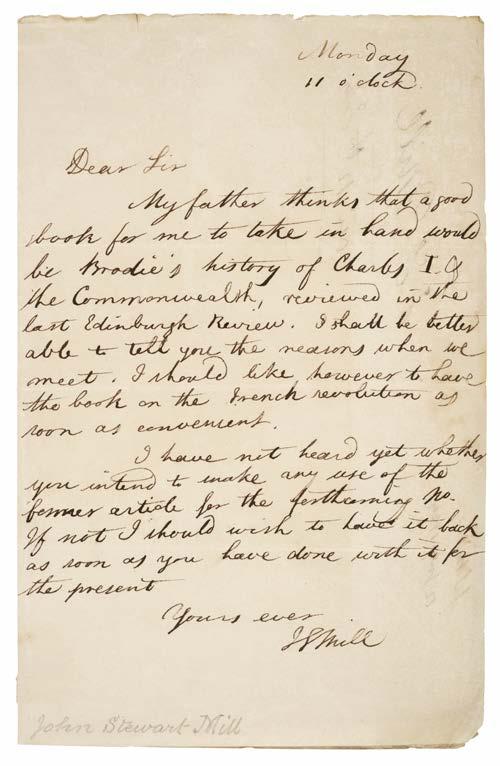 Monday
11 o'clock.
Dear Sir
My father thinks that a good
book for me to take in hand would
be Brodie's history of Charles I &
the Commonwealth, reviewed in the
last Edinburgh Review. I shall be better
able to tell you the reasons when we
meet. I should like however to have
the book on the French revolution as
soon as convenient.
I have not heard yet whether
you intend to make any use of the
former article for the forthcoming No.
If not I should wish to have it back
as soon as you have done with it for
the present
Yours ever
J S Mill
John Stewart Mill